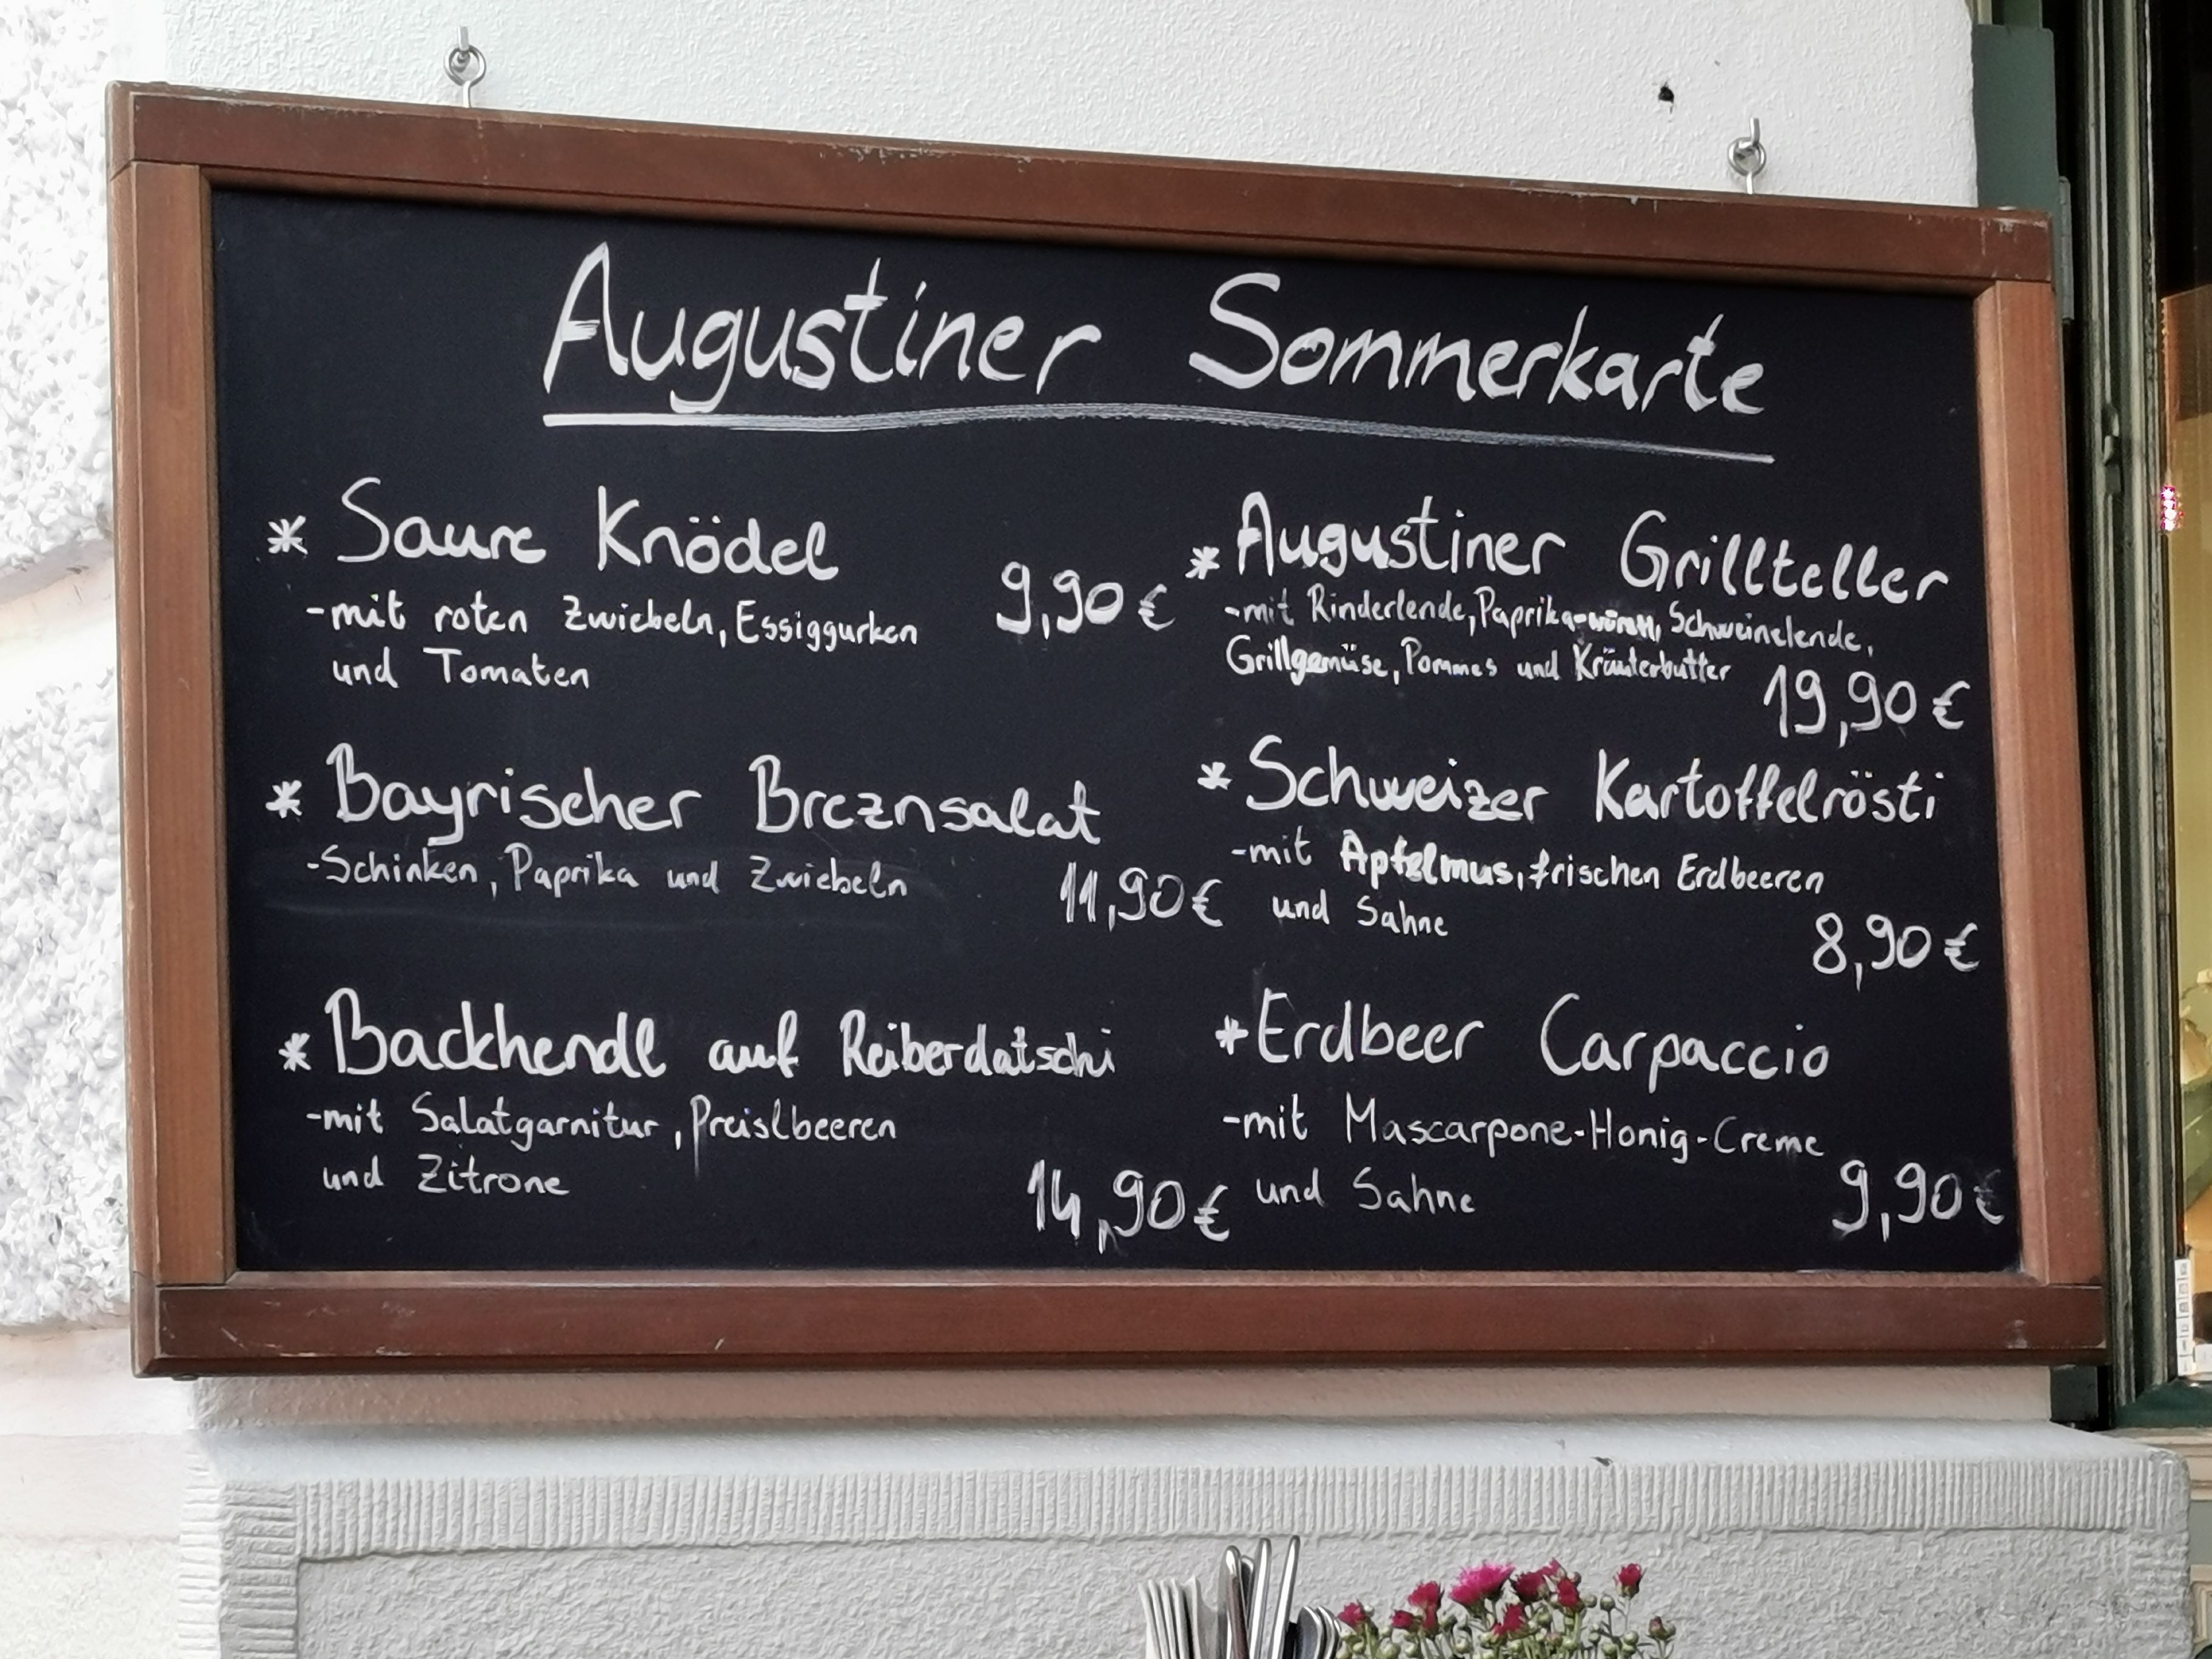 Augustiner Sommerkarte
* Saure Knödel
-mit roten Zwiebeln, Essiggurken
und Tomaten
9,90 €
* Bayrischer Breznsalat
-Schinken, Paprika und Zwiebeln
11,90 €
* Backhendl auf Reiberdatschi
-mit Salatgarnitur, Preislbeeren
und Zitrone
14,90 €
* Augustiner Grillteller
-mit Rinderlende, Paprika-würstl, Schweinelende,
Grillgemüse, Pommes und Kräuterbutter
19,90 €
* Schweizer Kartoffelrösti
-mit Apfelmus, frischen Erdbeeren
und Sahne
8,90 €
* Erdbeer Carpaccio
-mit Mascarpone-Honig-Creme
und Sahne
9,90 €